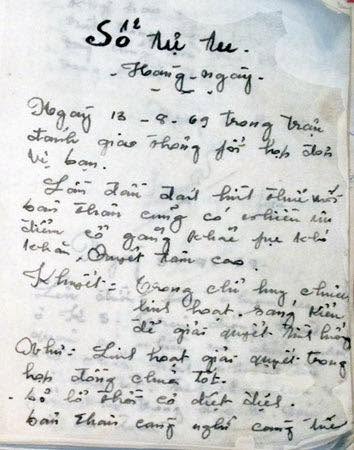 Sổ tự tu.
- Hàng - ngày -
Ngày 13 - 8 - 69 trong trận
đánh giao thông phối hợp đơn
vị bạn.
Lần đầu đánh
bản thân cũng có nhiều ưu
điểm cố gắng khắc phục khó
khăn, quyết tâm cao.
Khuyết: Trong chỉ huy chiến
linh hoạt, sáng kiến
để giải quyết tình huống
Như: Linh hoạt giải quyết trong
hợp đồng chưa tốt.
- bỏ lỡ thời cơ diệt địch.
bản thân cũng nghĩ cũng